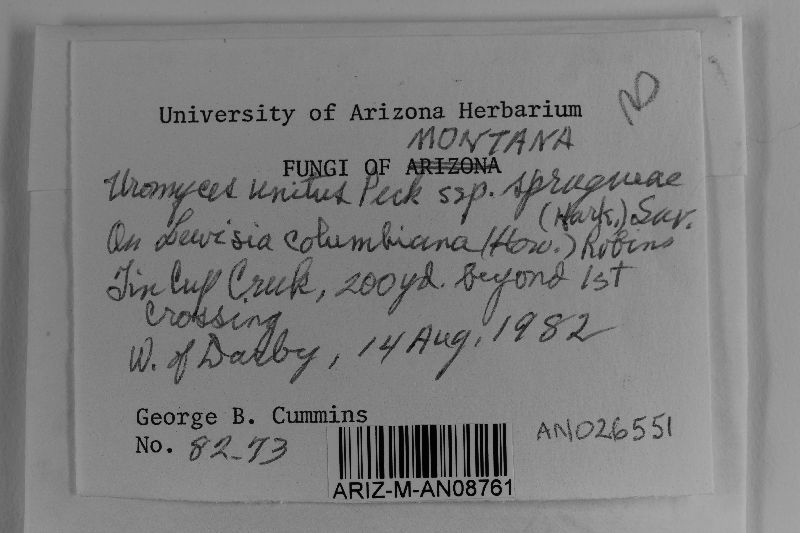 University of Arizona Herbarium
ND
MONTANA
FUNGI OF ARIZONA
Uromyces unitus Peck ssp. spragueae
(Hark.) Sav.
On Lewisia columbiana (How.) Robins
Tin Cup Creek, 200yd. beyond 1st
crossing
W. of Darby, 14 Aug. 1982
George B. Cummins
No. 82-73
AN026551
ARIZ-M-AN08761